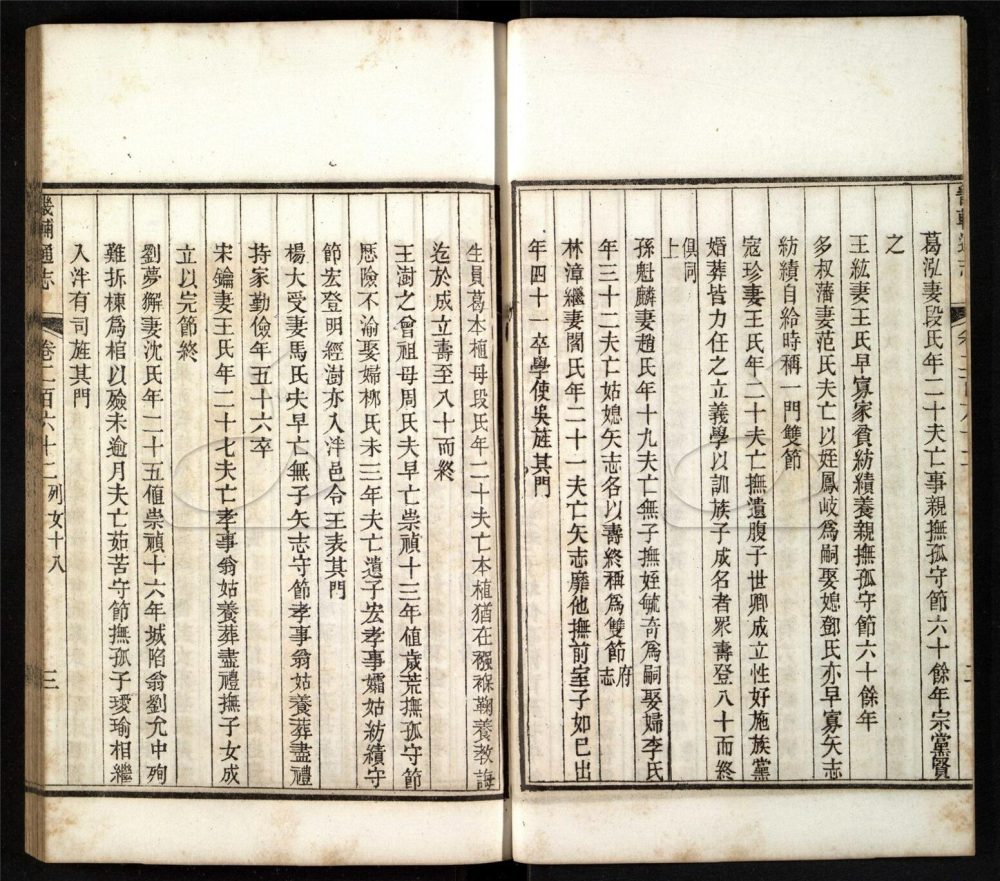 葛泓妻段氏年二十夫亡事親撫孤守節六十餘年宗黨賢
之
王紘妻王氏早寡家貧紡績養親撫孤守節六十餘年
多叔藩妻范氏夫亡以姪鳳岐爲嗣娶媳鄧氏亦早寡矢志
紡績自給時稱一門雙節
寇珍妻王氏年二十夫亡撫遺腹子世卿成立性好施族黨
婚葬皆力任之立義學以訓族子成名者眾壽登八十而終
俱同
上
孫魁麟妻趙氏年十九夫亡無子撫姪毓奇爲嗣娶婦李氏
年三十二夫亡姑媳矢志各以壽終稱爲雙節府
志
林漳繼妻閻氏年二十一夫亡矢志靡他撫前室子如已出
年四十一卒學使吳旌其門
生員葛本植母段氏年二十夫亡本植猶在襁褓鞠養教誨
迄於成立壽至八十而終
王澍之曾祖母周氏夫早亡崇禎十三年值歲荒撫孤守節
歷險不渝娶婦栁氏未三年夫亡遺子宏孝事孀姑紡績守
節宏登明經澍亦入泮邑令王表其門
楊大受妻馬氏夫早亡無子矢志守節孝事翁姑養葬盡禮
持家勤儉年五十六卒
宋鑰妻王氏年二十七夫亡孝事翁姑養葬盡禮撫子女成
立以完節終
劉夢獬妻沈氏年二十五値崇禎十六年城陷翁劉允中殉
難拆棟爲棺以殮未逾月夫亡茹苦守節撫孤子璦瑜相繼
入泮有司旌其門
畿輔通志 卷二百六十二 列女十八 三